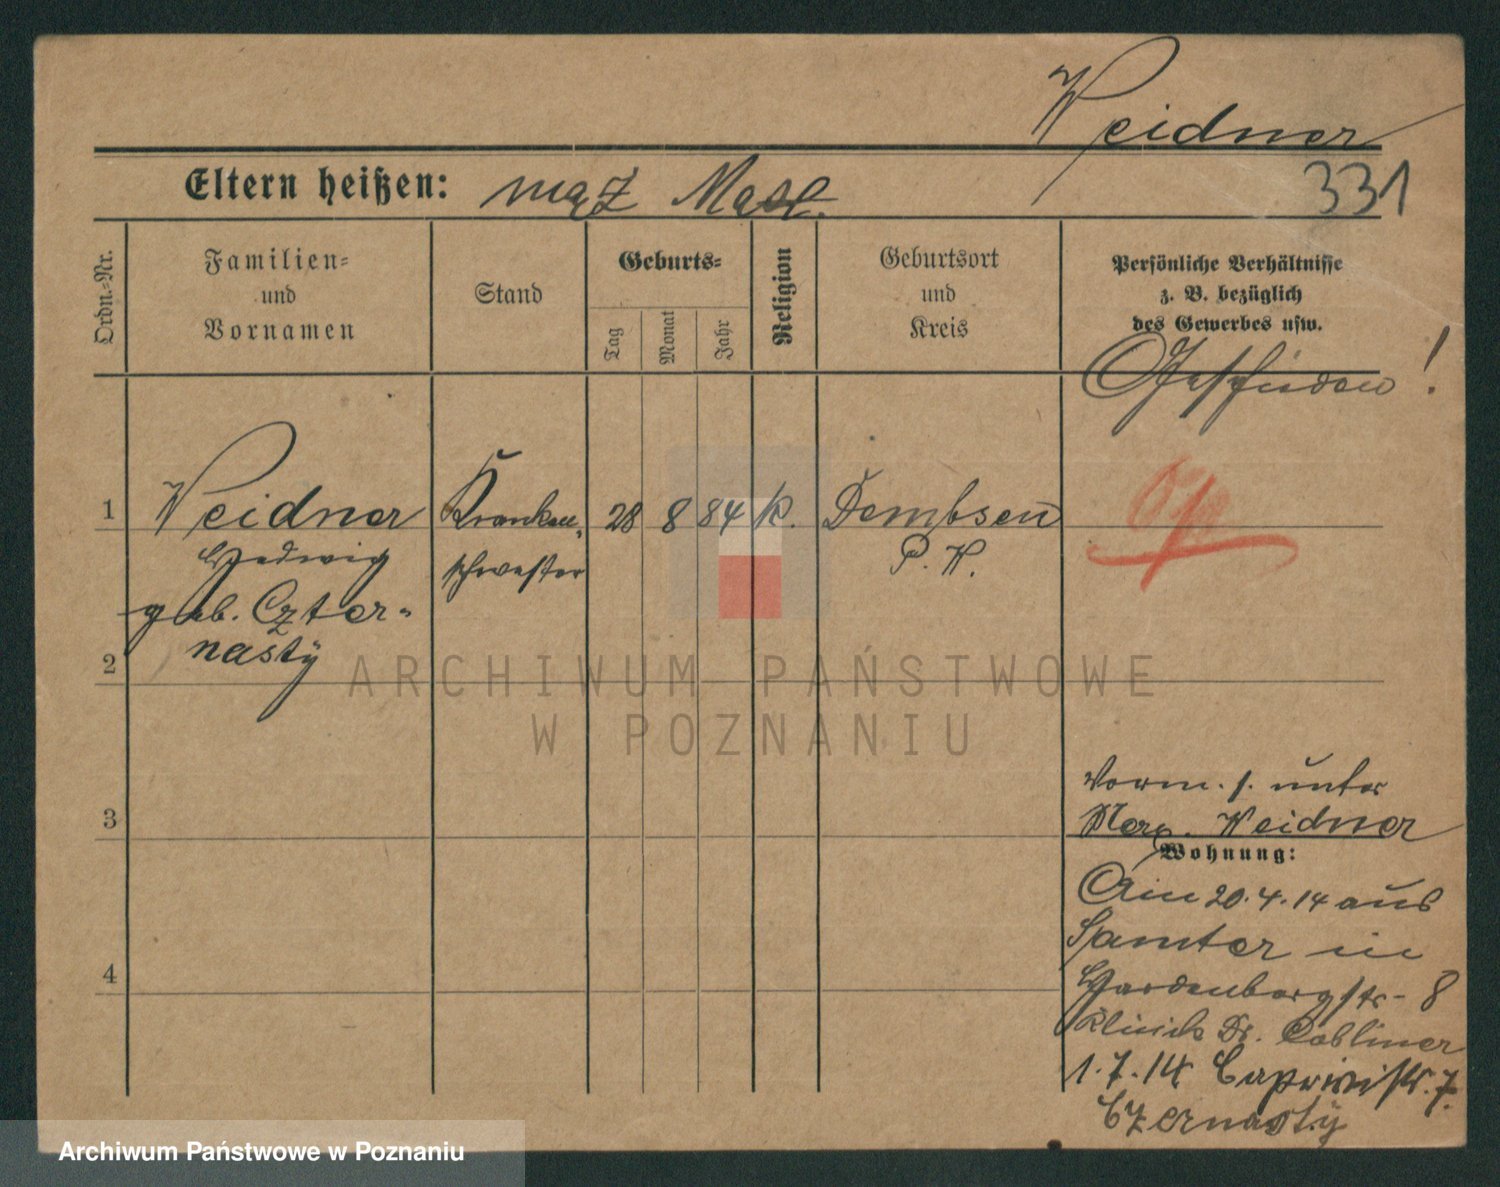 Weidner
Eltern heißen: mąż Masc.
331
Ordn.-Nr.
Familien-
und
Vornamen
Stand
Geburts-
Tag
Monat
Jahr
Religion
Geburtsort
und
Kreis
Persönliche Verhältnisse
z. B. bezüglich
des Gewerbes usw.
Geschieden!
1 Weidner Kranken- 28 8 84 K. Dembsen
Hedwig schwester P. W.
geb. Czter-
nasty
2
3
4
Vorm. s. unter
Weidner
Wohnung:
Am 20.4.14 aus
Samter in
Hardenbergstr. 8
Klinik Dr. Cobliner
1.7.14 Caprivistr. 7.
Czernasty
ARCHIWUM PAŃSTWOWE
W POZNANIU
Archiwum Państwowe w Poznaniu